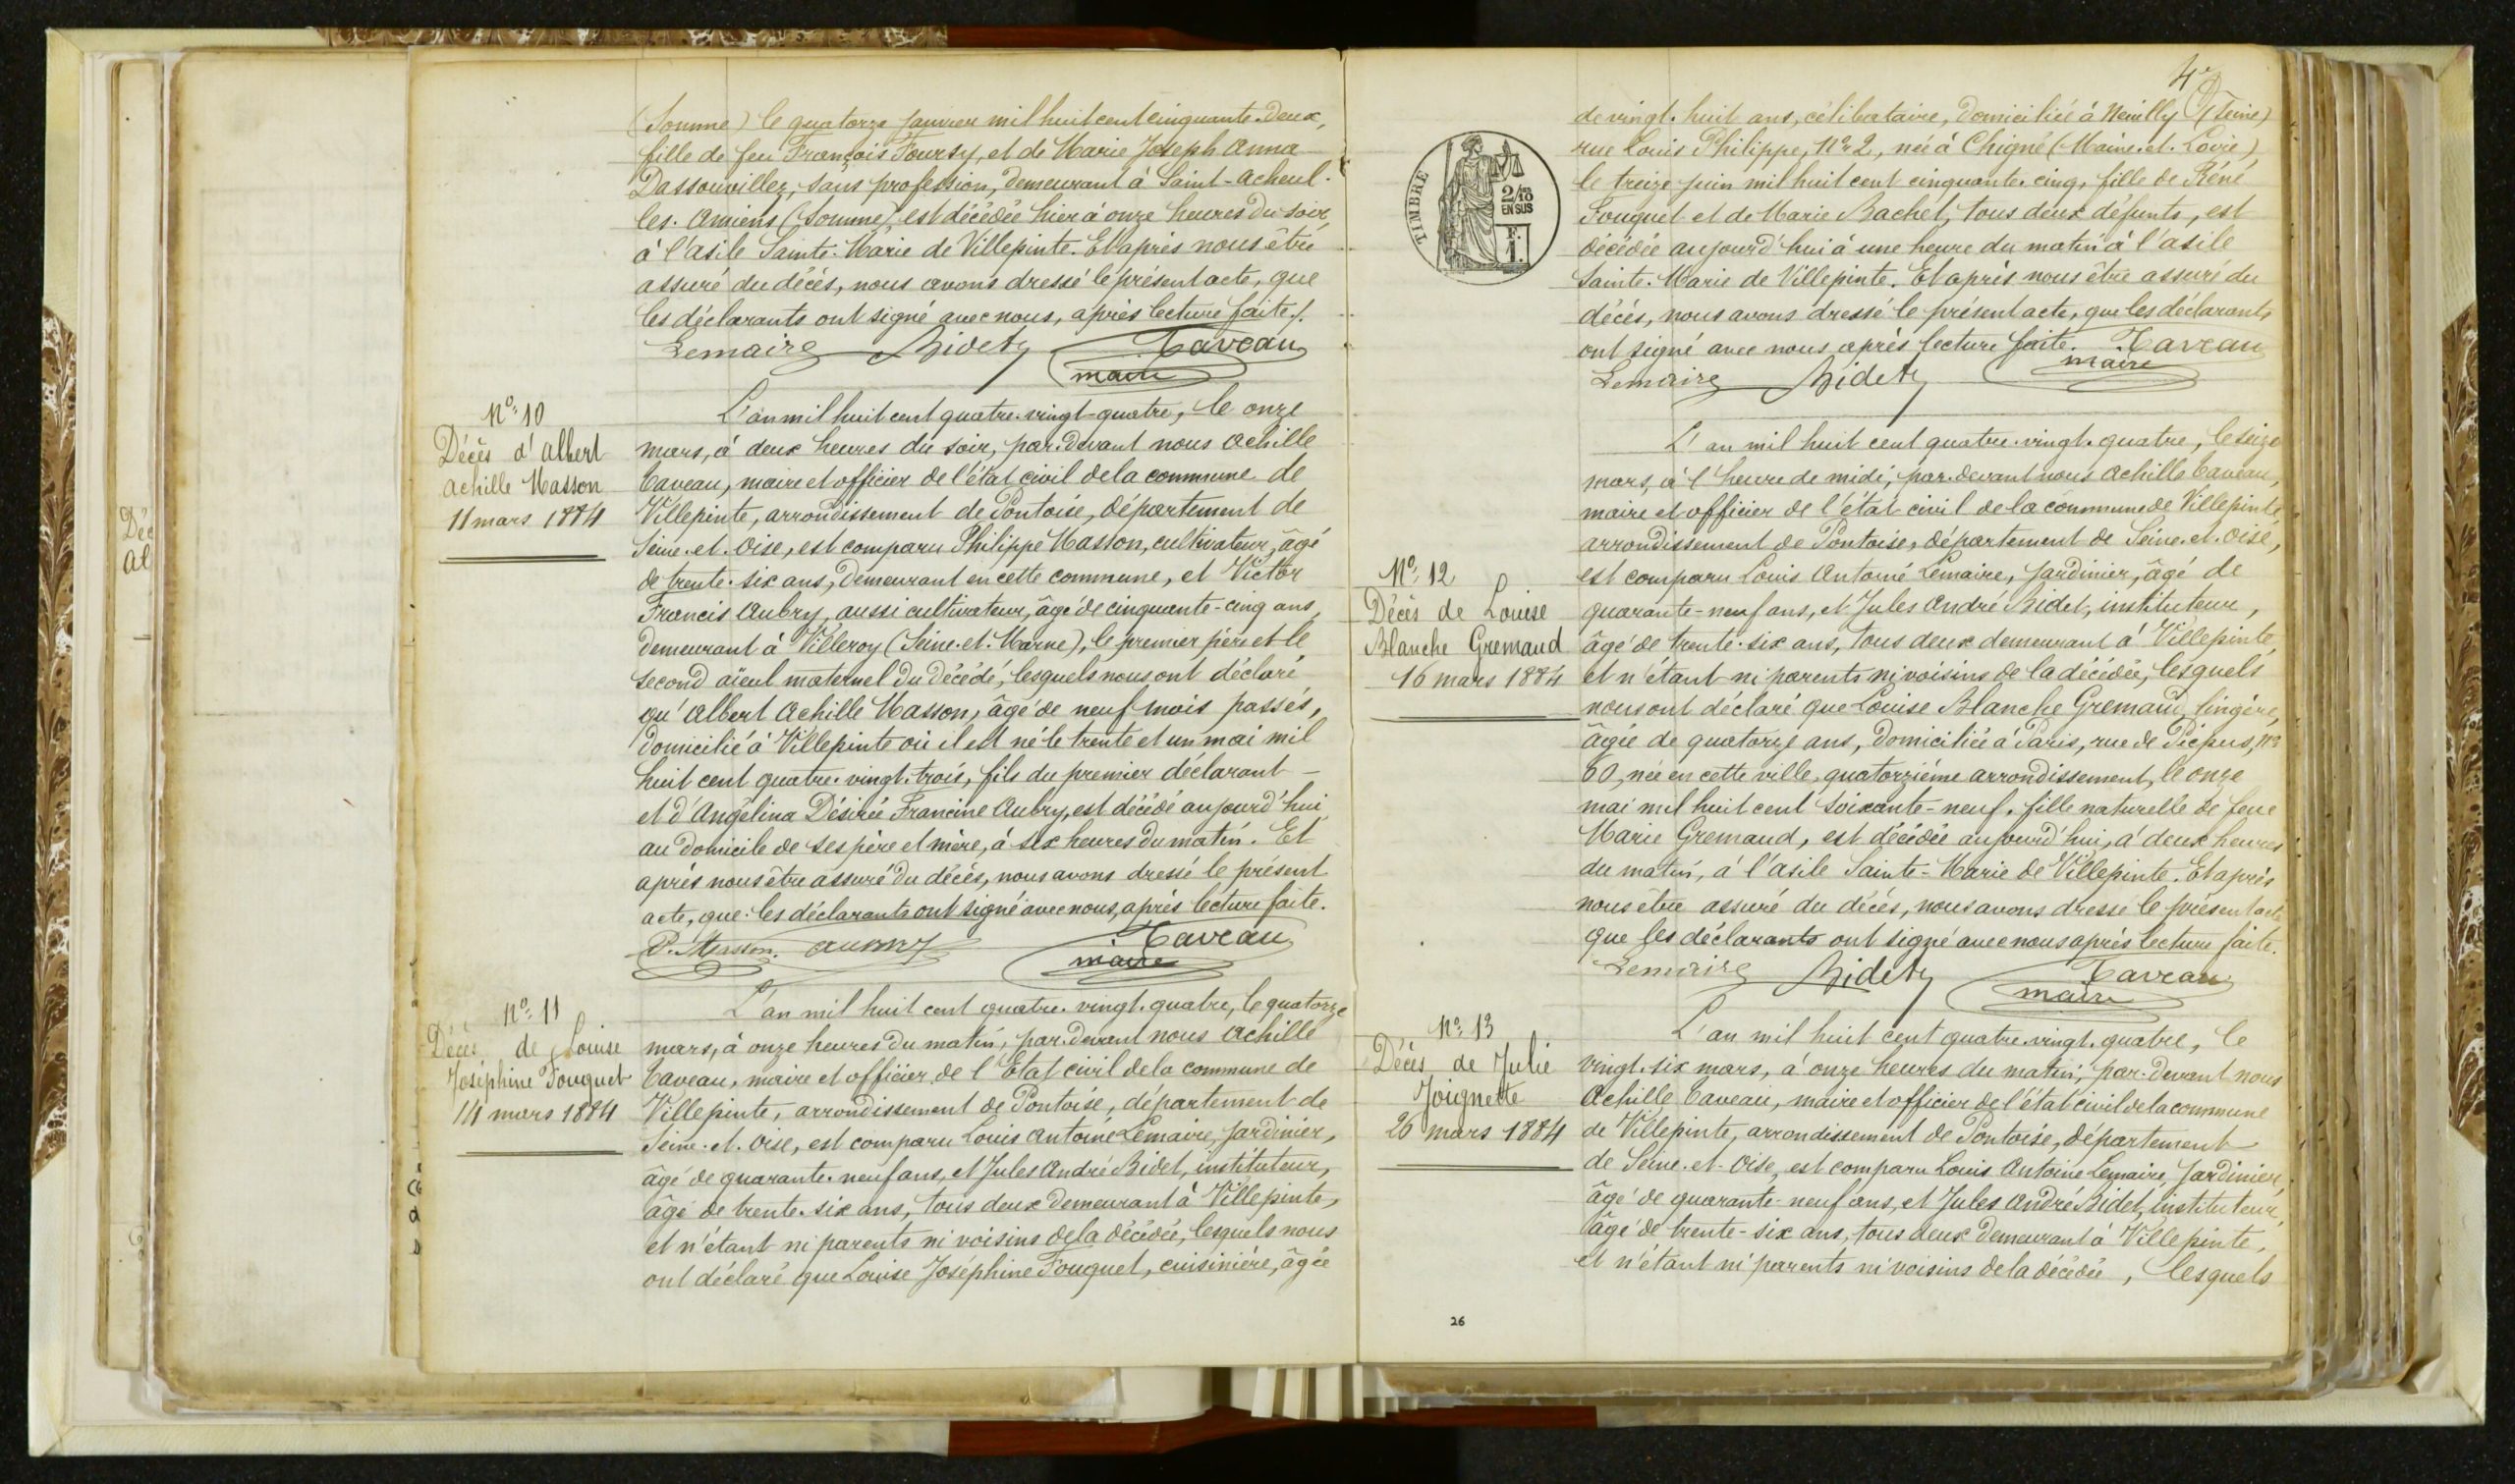 (Somme) le quatorze janvier mil huit cent cinquante-deux,
fille de feu François Foursy, et de Marie Joseph Anna
Dassouvillez, sans profession, demeurant à Saint-Acheul-
les-Amiens (Somme), est décédée hier à onze heures du soir,
à l'asile Sainte-Marie de Villepinte. Et après nous être
assuré du décès, nous avons dressé le présent acte, que
les déclarants ont signé avec nous, après lecture faite /.
Lemaire Bidet Taveau
maire
N° 10
Décès d'Albert
Achille Masson
11 mars 1884
L'an mil huit cent quatre-vingt-quatre, le onze
mars, à deux heures du soir, par-devant nous Achille
Taveau, maire et officier de l'état civil de la commune de
Villepinte, arrondissement de Pontoise, département de
Seine-et-Oise, est comparu Philippe Masson, cultivateur, âgé
de trente-six ans, demeurant en cette commune, et Victor
Francis Aubry, aussi cultivateur, âgé de cinquante-cinq ans,
demeurant à Villeroy (Seine-et-Marne), le premier père et le
second aïeul maternel du décédé, lesquels nous ont déclaré
qu'Albert Achille Masson, âgé de neuf mois passés,
domicilié à Villepinte où il est né le trente et un mai mil
huit cent quatre-vingt-trois, fils du premier déclarant –
et d'Angélina Désirée Francine Aubry, est décédé aujourd'hui
au domicile de ses père et mère, à six heures du matin. Et
après nous être assuré du décès, nous avons dressé le présent
acte, que les déclarants ont signé avec nous, après lecture faite.
P. Masson. Aubry Taveau
maire
N° 11
Décès de Louise
Joséphine Fouquet
14 mars 1884
L'an mil huit cent quatre-vingt-quatre, le quatorze
mars, à onze heures du matin, par-devant nous Achille
Taveau, maire et officier de l'Etat civil de la commune de
Villepinte, arrondissement de Pontoise, département de
Seine-et-Oise, est comparu Louis Antoine Lemaire, jardinier,
âgé de quarante-neuf ans, et Jules André Bidet, instituteur,
âgé de trente-six ans, tous deux demeurant à Villepinte,
et n'étant ni parents ni voisins de la décédée, lesquels nous
ont déclaré que Louise Joséphine Fouquet, cuisinière, âgée
4e
TIMBRE
2/10
EN SUS
F.
1.
de vingt-huit ans, célibataire, domiciliée à Neuilly (Seine)
rue Louis Philippe, N° 2, née à Chigné (Maine-et-Loire)
le treize juin mil huit cent cinquante-cinq, fille de Réné
Fouquet et de Marie Bachet, tous deux défunts, est
décédée aujourd'hui à une heure du matin à l'asile
Sainte-Marie de Villepinte. Et après nous être assuré du
décès, nous avons dressé le présent acte, que les déclarants
ont signé avec nous après lecture faite. Taveau
Lemaire Bidet maire
N° 12
Décès de Louise
Blanche Gremaud
16 mars 1884
L'an mil huit cent quatre-vingt-quatre, le seize
mars, à l'heure de midi, par-devant nous Achille Taveau,
maire et officier de l'état civil de la commune de Villepinte
arrondissement de Pontoise, département de Seine-et-Oise,
est comparu Louis Antoine Lemaire, jardinier, âgé de
quarante-neuf ans, et Jules André Bidet, instituteur,
âgé de trente-six ans, tous deux demeurant à Villepinte
et n'étant ni parents ni voisins de la décédée, lesquels
nous ont déclaré que Louise Blanche Gremaud, lingère,
âgée de quatorze ans, domiciliée à Paris, rue de Picpus, N°
60, née en cette ville, quatorzième arrondissement, le onze
mai mil huit cent soixante-neuf, fille naturelle de feue
Marie Gremaud, est décédée aujourd'hui, à deux heures
du matin, à l'asile Sainte-Marie de Villepinte. Et après
nous être assuré du décès, nous avons dressé le présent acte
que les déclarants ont signé avec nous après lecture faite.
Lemaire Bidet Taveau
maire
N° 13
Décès de Julie
Joignette
26 mars 1884
L'an mil huit cent quatre-vingt-quatre, le
vingt-six mars, à onze heures du matin, par-devant nous
Achille Taveau, maire et officier de l'état civil de la commune
de Villepinte, arrondissement de Pontoise, département
de Seine-et-Oise, est comparu Louis Antoine Lemaire, jardinier,
âgé de quarante-neuf ans, et Jules André Bidet, instituteur,
âgé de trente-six ans, tous deux demeurant à Villepinte,
et n'étant ni parents ni voisins de la décédée, lesquels
26